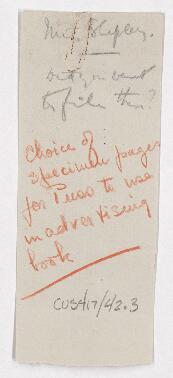 Miss Shipley.
Do you want
to file this?
Choice of
specimen pages
for Press to use
in advertising
book
CUS417/42.3